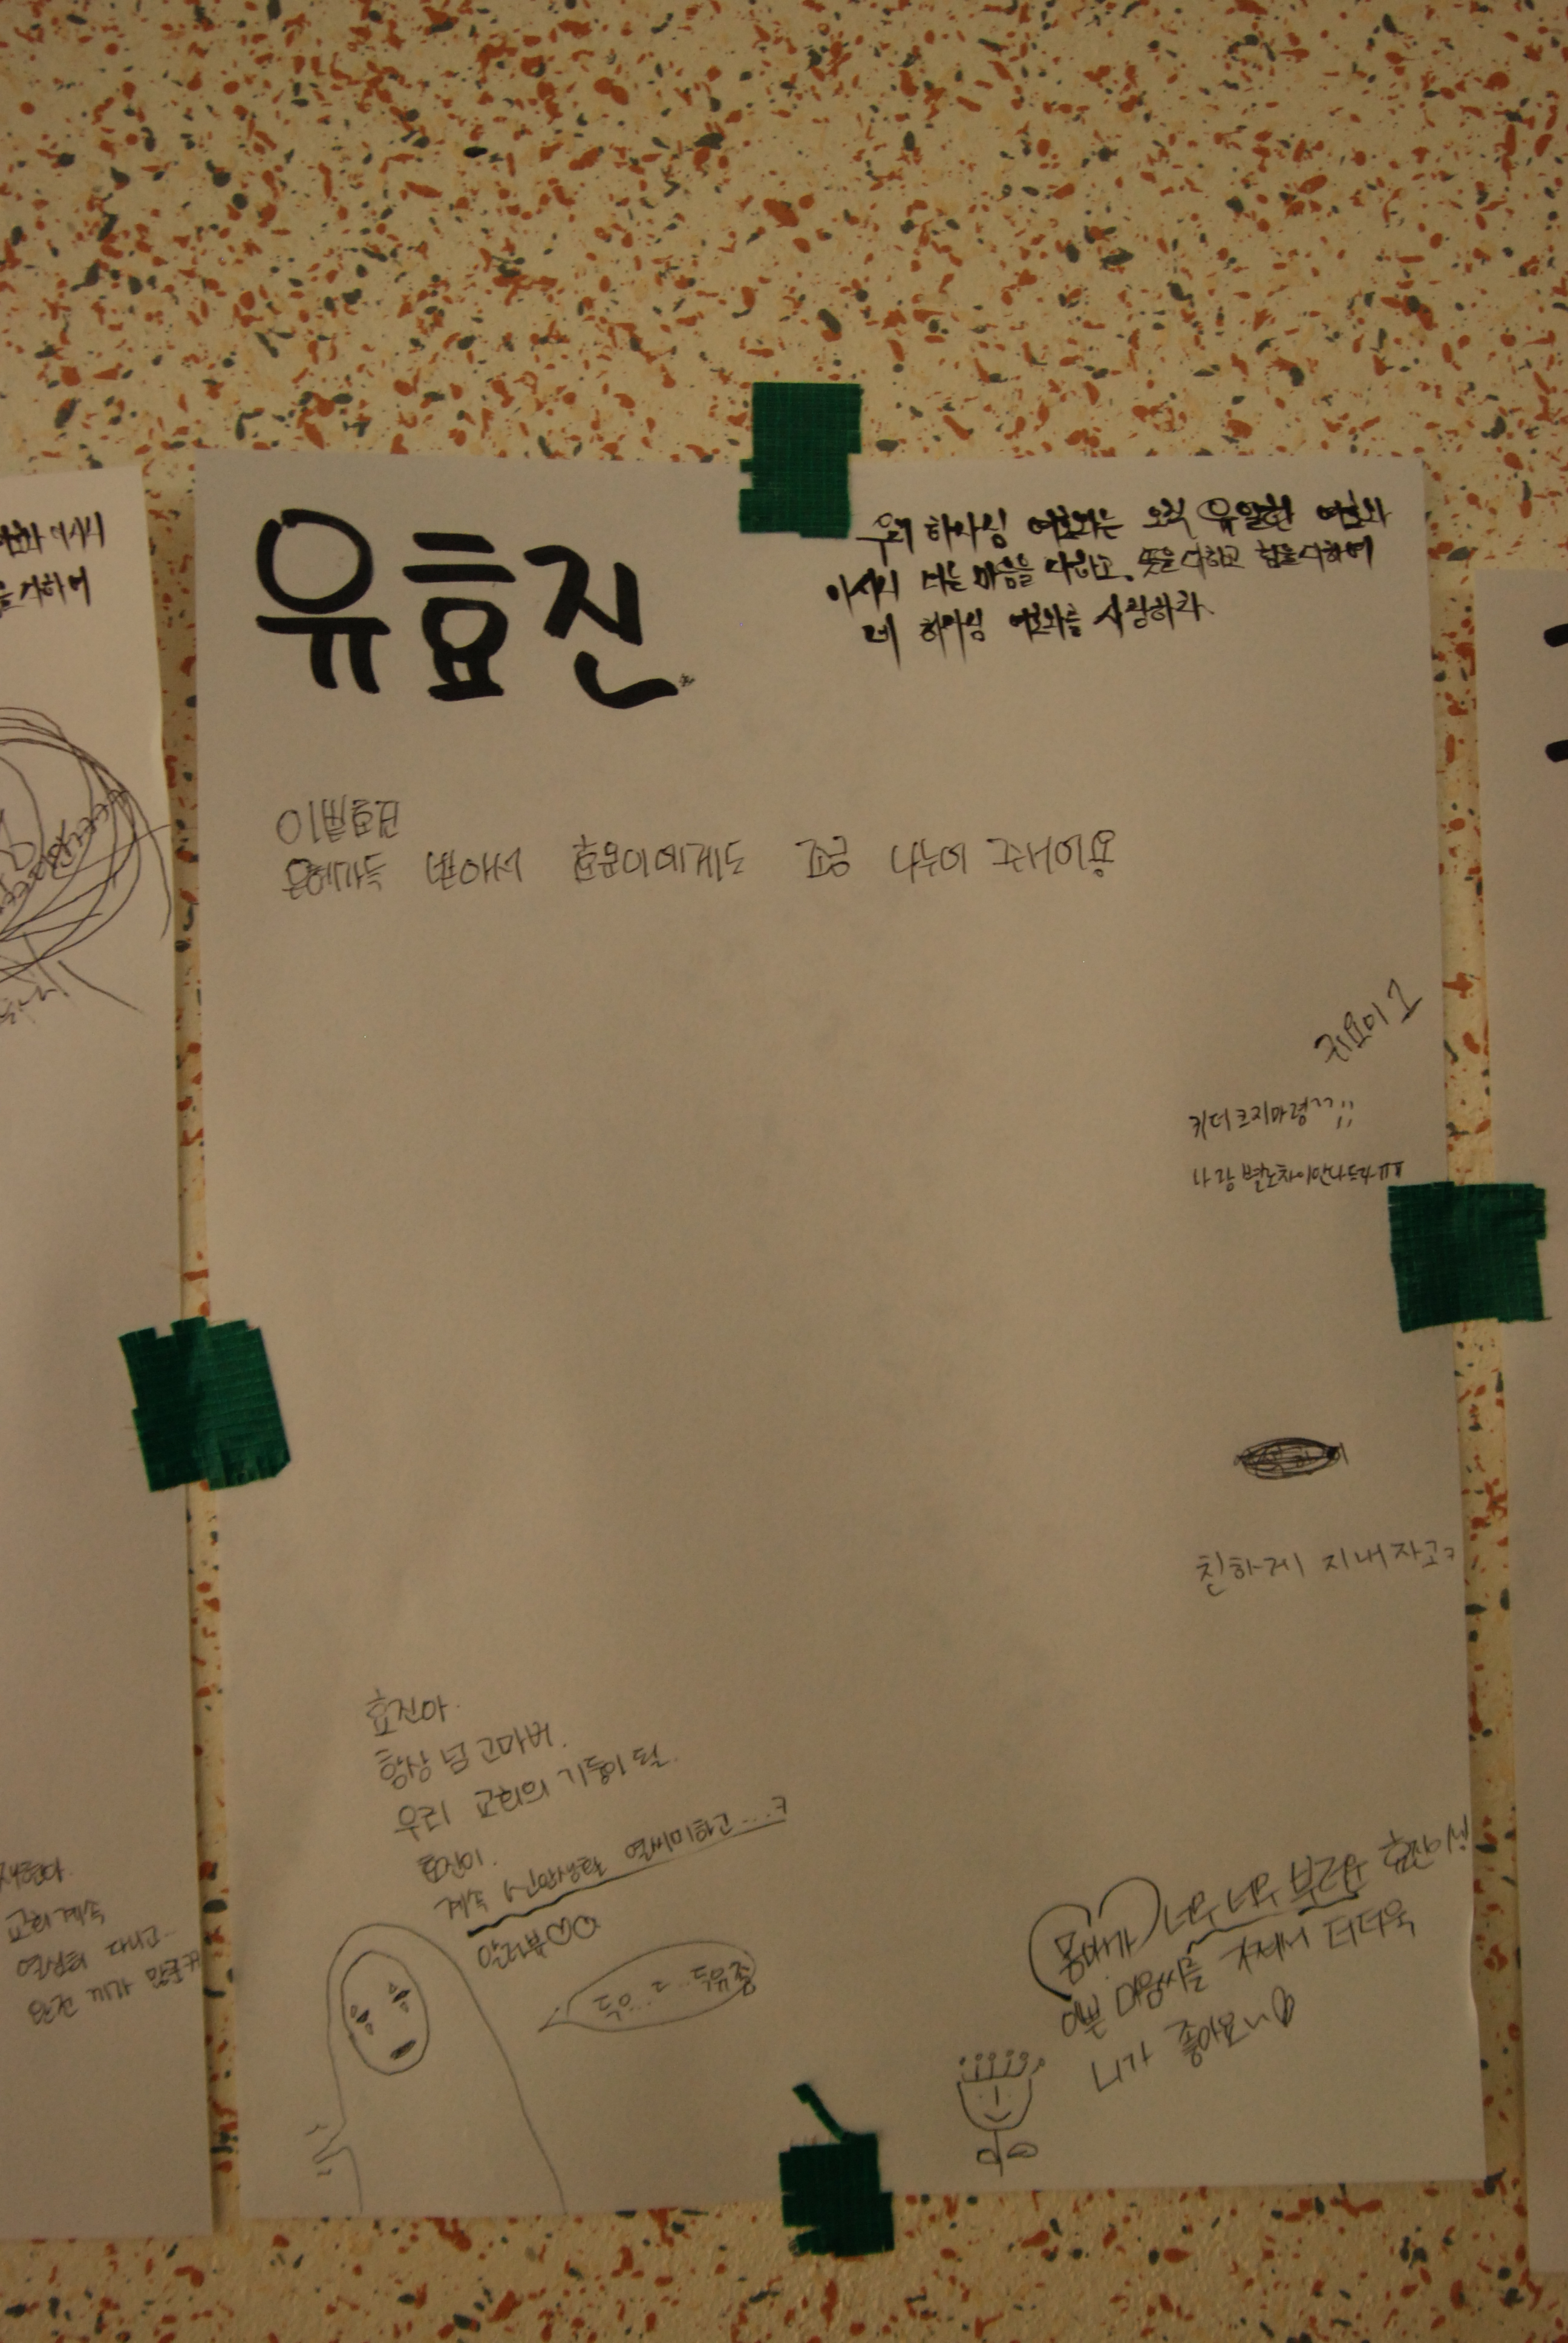 유효진
우리 하나님 여호와는 오직 유일한 여호와
이시니 너는 마음을 다하고, 뜻을 다하고 힘을 다하여
네 하나님 여호와를 사랑하라.
은혜가득 받아서 효문이에게도 조금 나누어 주서이용
귀요미 1
키더크지마렴^^;;
나랑 별로차이안나드라ㅠㅠ
친하게 지내자고ㅋ
효진아.
항상 넘 고마버.
우리 교회의 기둥이 될
효진이.
계속 신앙생활 열씨미하고....ㅋ
알러뷰♡♡
몸매가 너무 너무 부러운 효진이 넌
예쁜 마음씨를 가져서 더더욱
니가 좋아요~♡
교회계속
열심히 다니고...